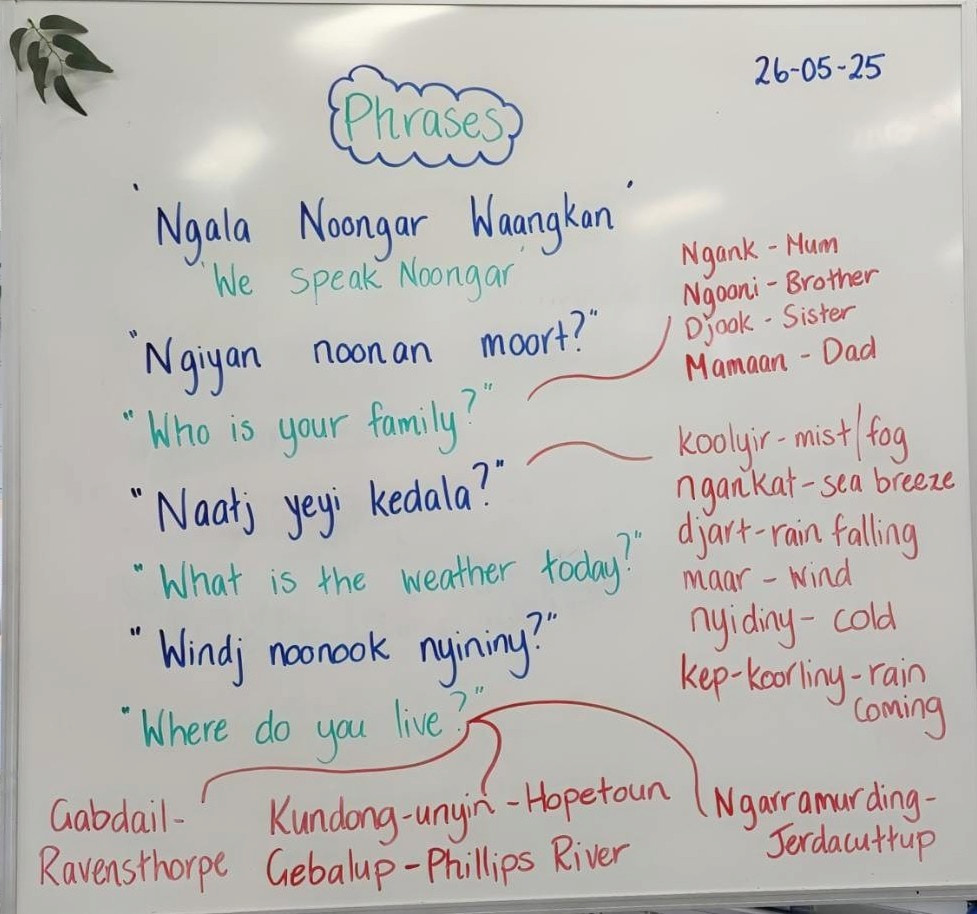 26-05-25
Phrases
'Ngala Noongar Waangkan'
'We Speak Noongar'
"Ngiyan noonan moort?"
"Who is your family?"
Ngank - Mum
Ngooni - Brother
Djook - Sister
Mamaan - Dad
"Naatj yeyi kedala?"
"What is the weather today?"
koolyir - mist/fog
ngankat - sea breeze
djart - rain falling
maar - wind
nyidiny - cold
kep-koorliny - rain
coming
"Windj noonook nyininy?"
"Where do you live?"
Gabdail -
Ravensthorpe
Kundong-unyin - Hopetoun
Gebalup - Phillips River
Ngarramurding -
Jerdacuttup